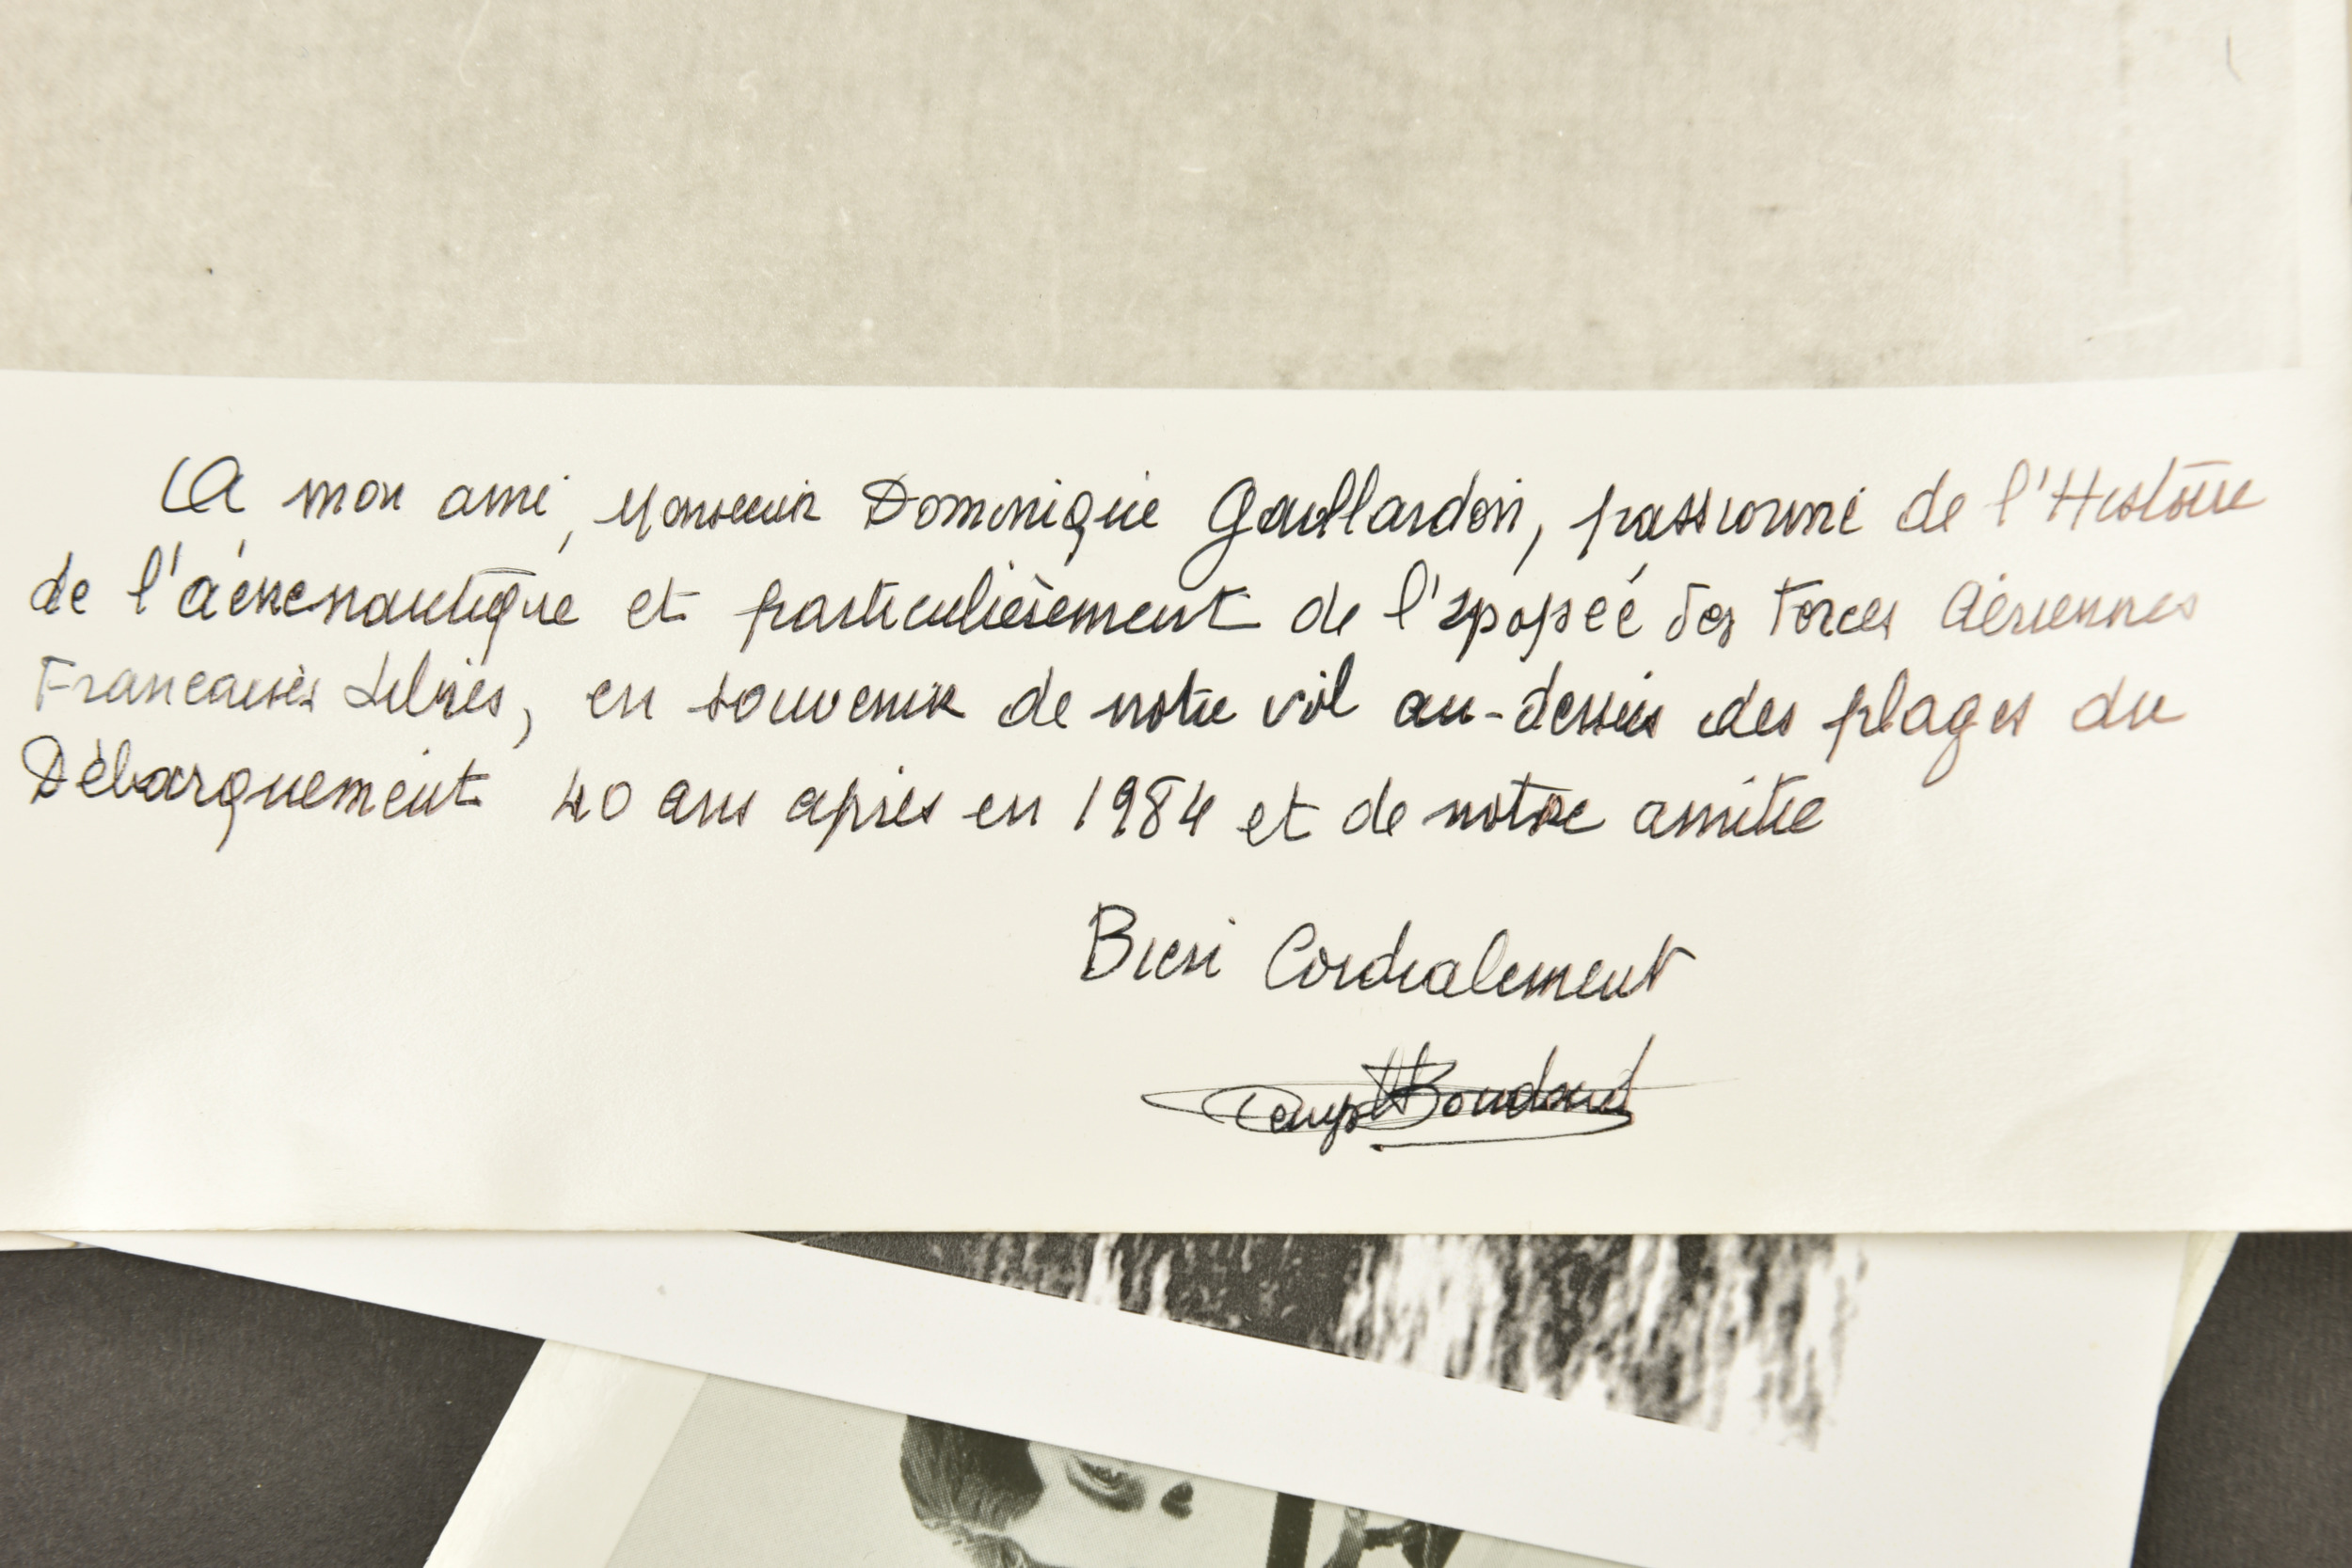 A mon ami, Monsieur Dominique Gaillardon, passionné de l'Histoire
de l'aéronautique et particulièrement de l'épopéé des Forces Aériennes
Francaises Libres, en souvenir de notre vol au-dessus des plages du
Débarquement 40 ans après en 1984 et de notre amitie
Bien Cordialement
Denys Boudard